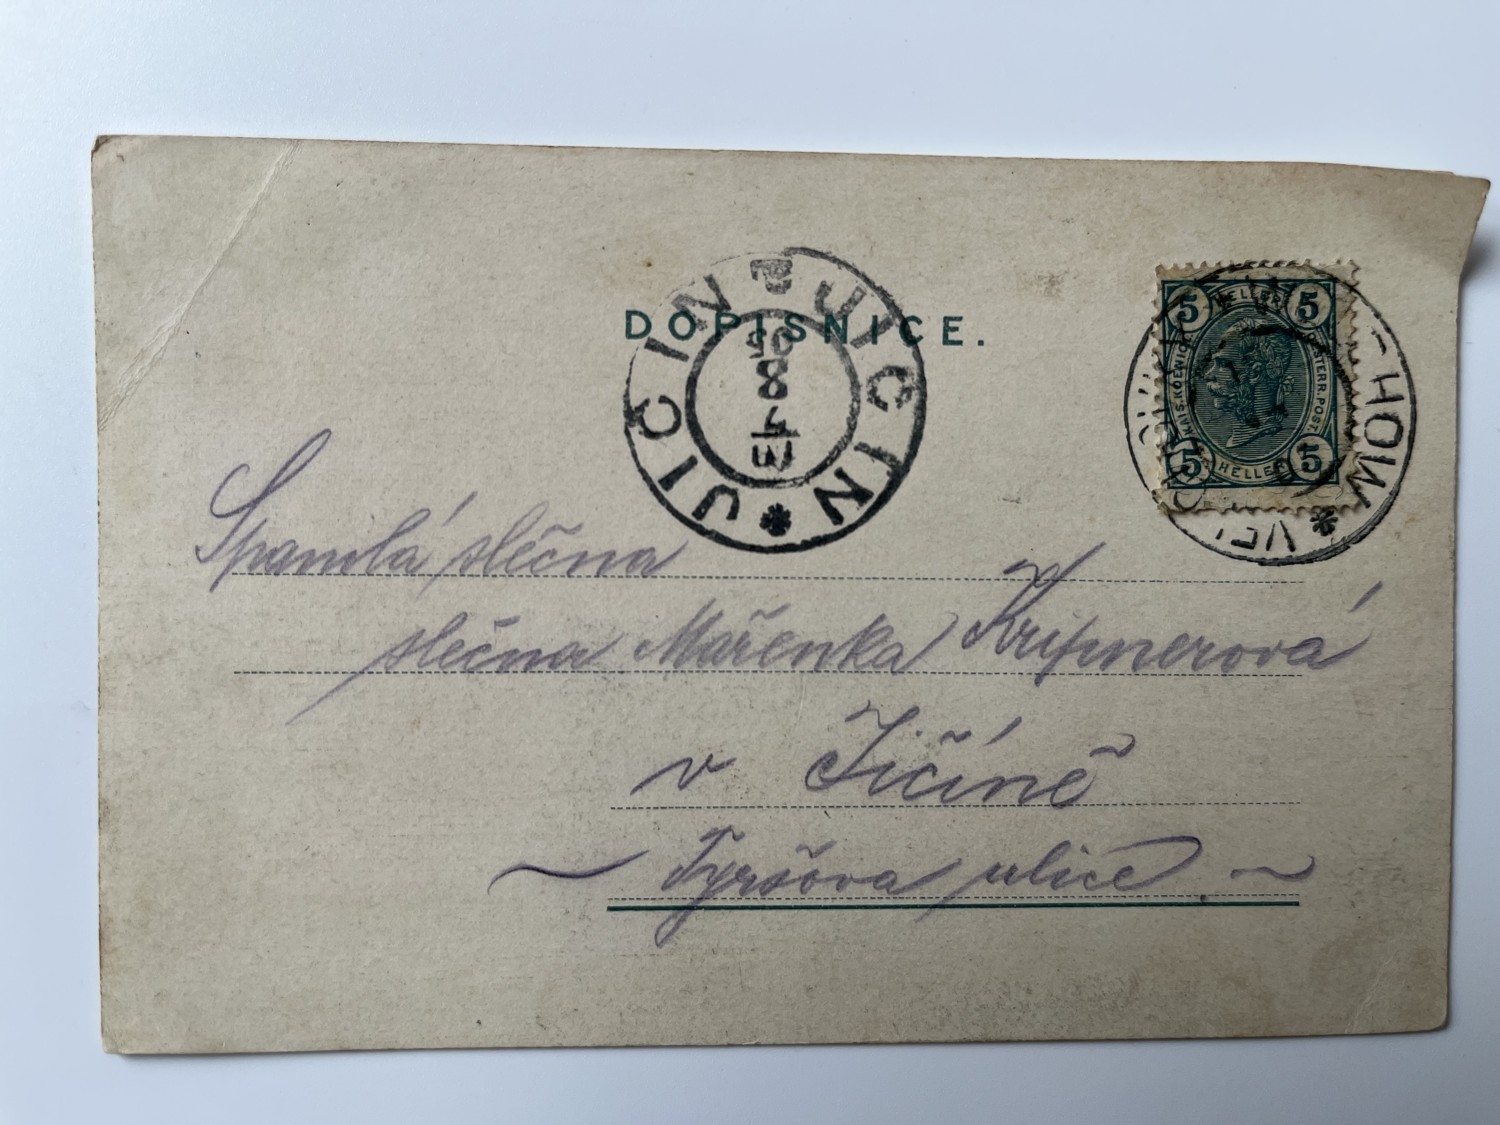 DOPISNICE.
JICIN JICIN JICIN
5 HELLER 5
KAIS.KOENIGL. ÖSTERR.POST.
5 HELLER 5
Spanilá slečna
slečna Mařenka Kripnerová
v Jičíně
Tyršova ulice.